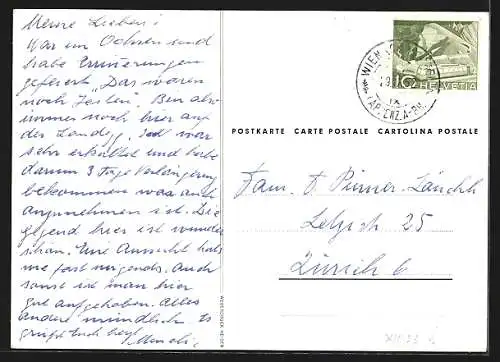 Meine Lieben!
War im Ochsen und
habe Erinnerungen
gefeiert "Das waren
noch Zeiten. Bin also
immer noch hier auf
der Landegg. War
sehr erkältet und habe
darum 3 Tage Verlängerung
bekommen was auch
angenehmen ist. Die
gegend hier ist wunder
schön. Eine Aussicht hats
wie fast nirgends. Auch
sonst ist man hier
gut aufgehoben. Alles
andere mündlich. Es
grüsst Euch
WIEN
HELVETIA
POSTKARTE CARTE POSTALE CARTOLINA POSTALE
Fam. F.
25
Zürich 6